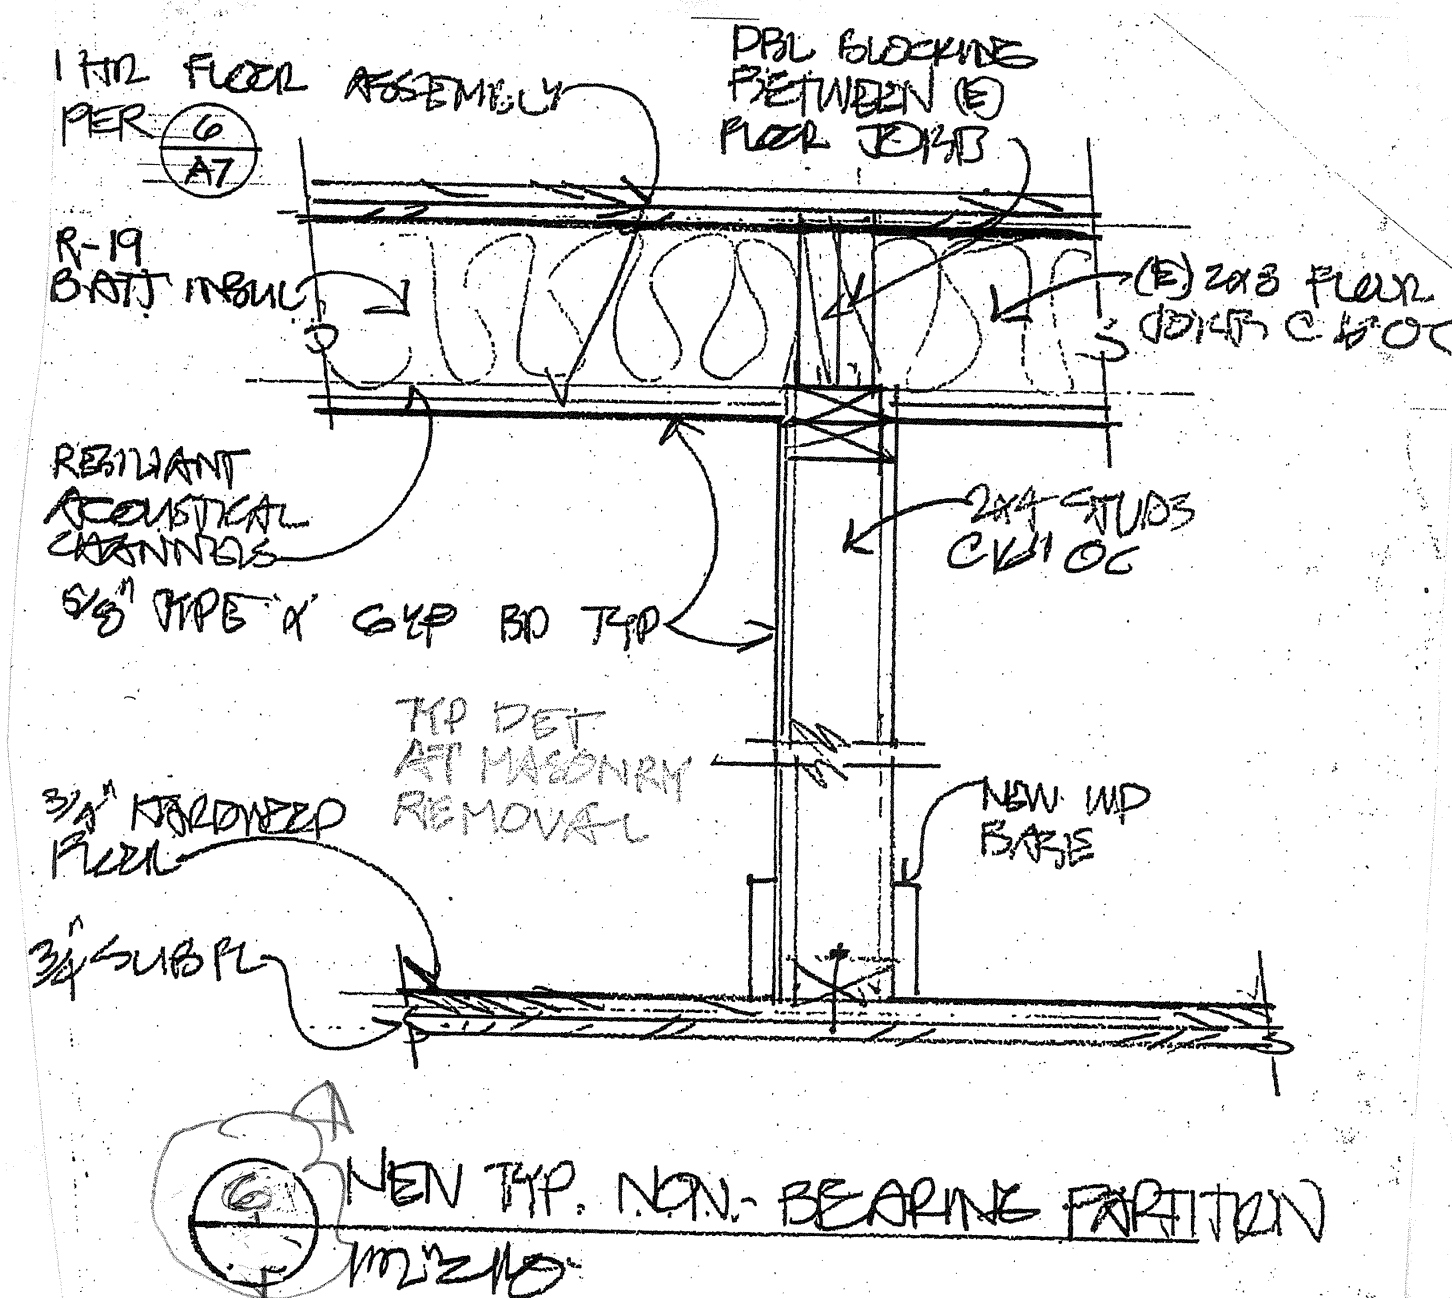 1 HR FLOOR ASSEMBLY
PER 6
A7
DBL BLOCKING
BETWEEN (E)
FLOOR JOISTS
R-19
BATT INSUL
(E) 2X8 FLOOR
JOISTS C 16" OC
RESILIANT
ACOUSTICAL
CHANNELS
2X4 STUDS
C 16" OC
5/8" TYPE 'X' GYP BD TYP
TYP DET
AT MASONRY
REMOVAL
3/4" HARDWOOD
FLOOR
NEW WD
BASE
3/4" SUBFL
6
NEW TYP. NON-BEARING PARTITION